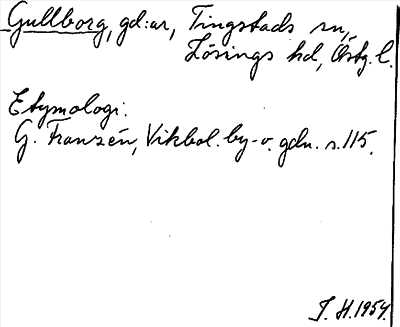 Gullborg, gd:ar, Tingstads sn,
Lösings hd, Östg. l.
Etymologi:
G. Franzén, Vikbol. by- o. gdn. s. 115.
J. H. 1954.